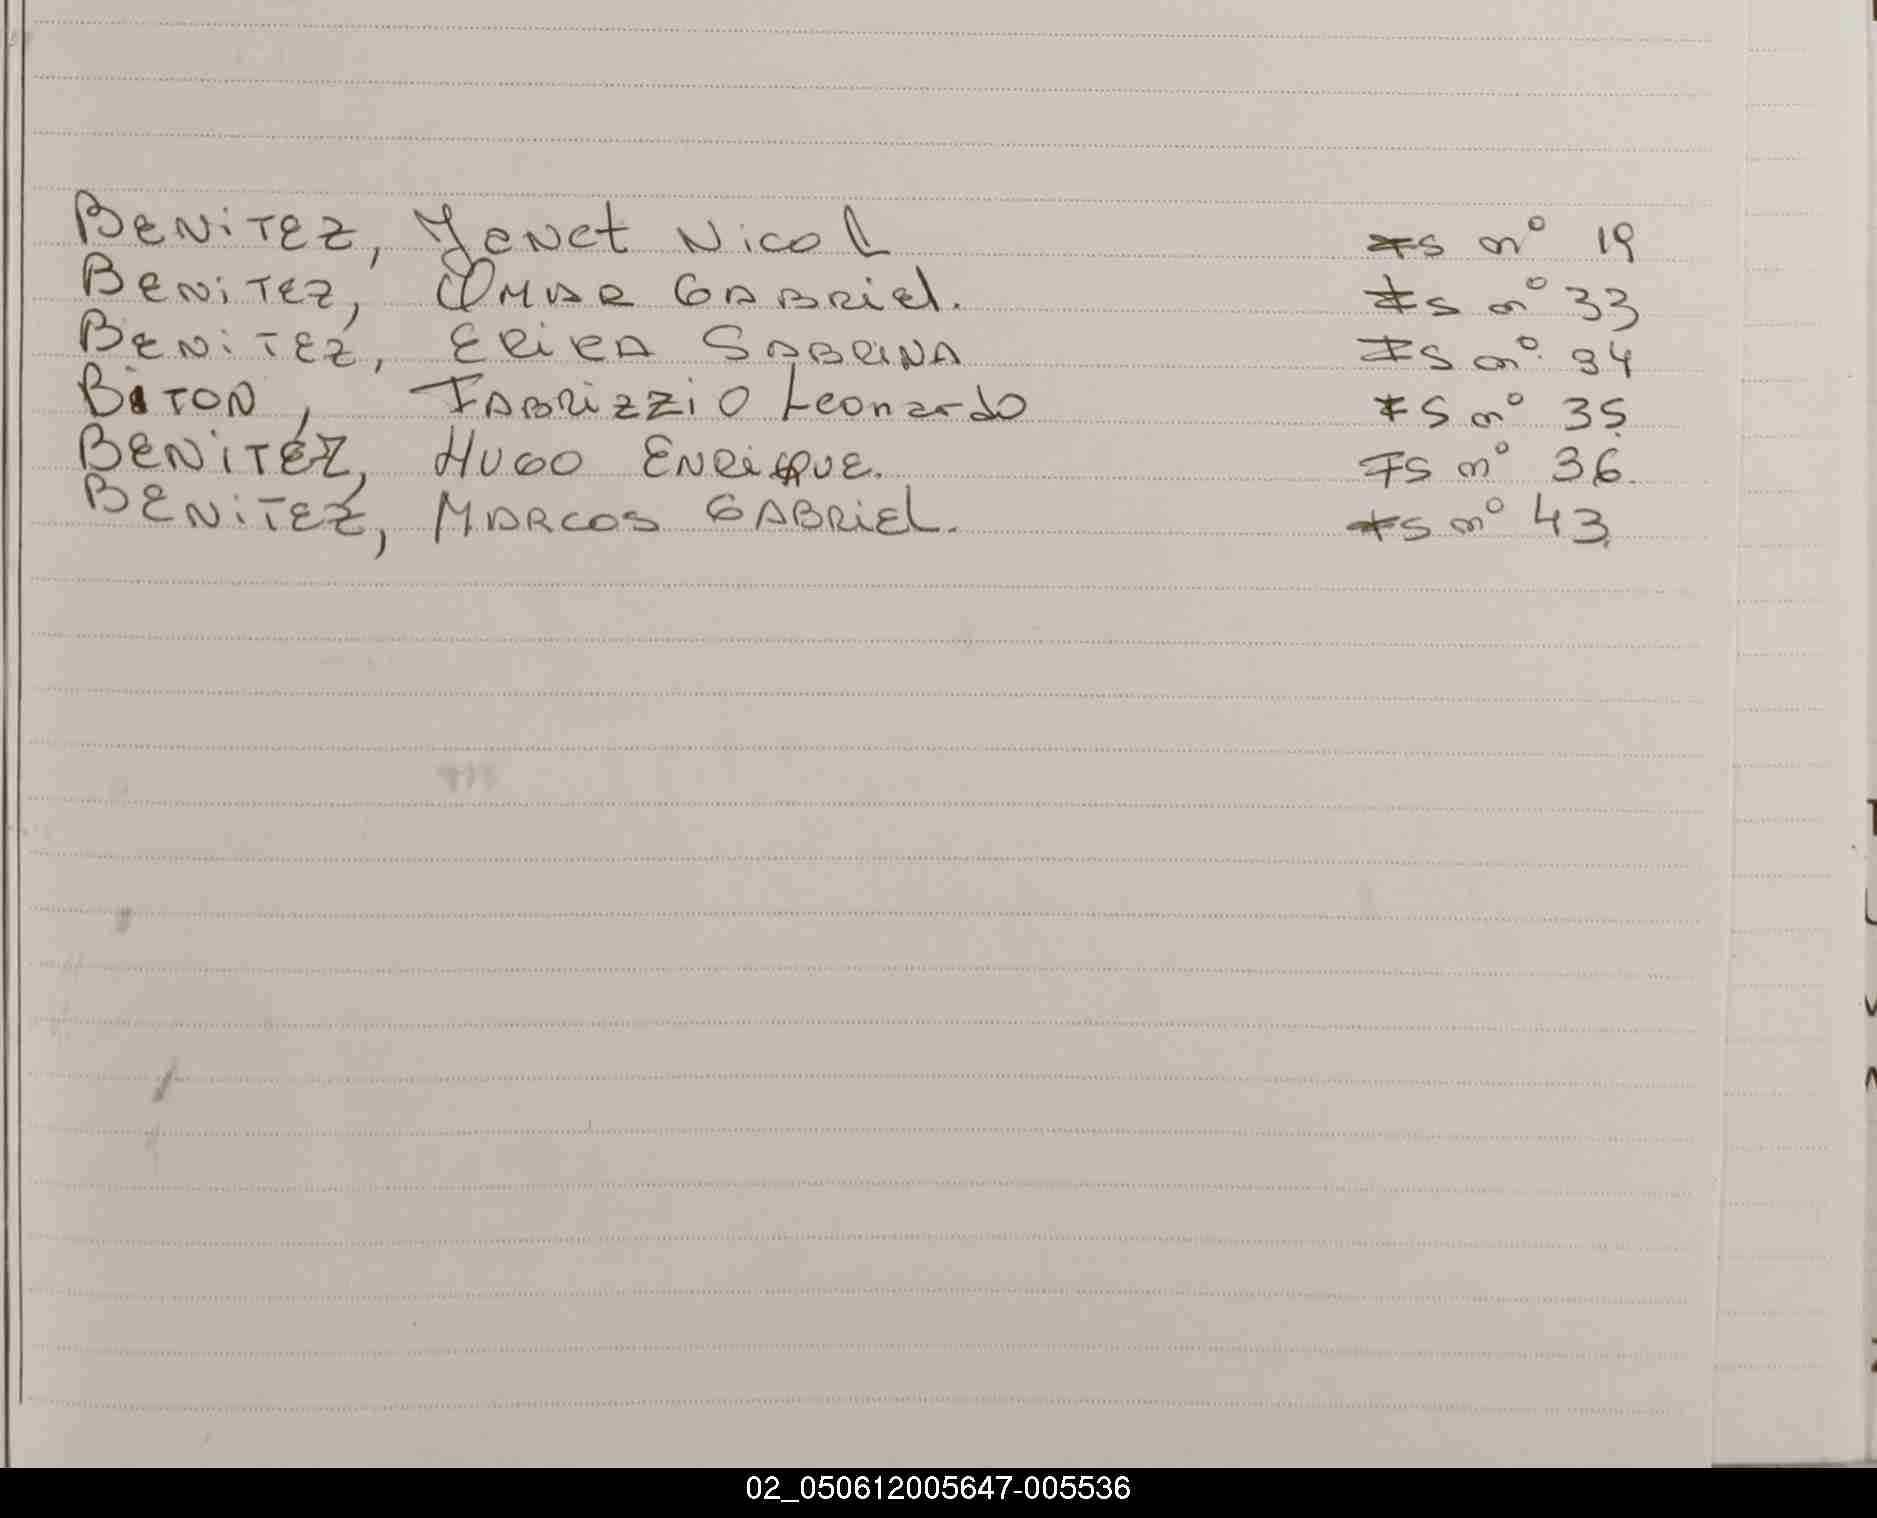 BENITEZ, Yenet Nicol Fs nº 19
BENITEZ, OMAR GABRIEL. Fs nº 33
BENITEZ, ERIKA SABRINA Fs nº 34
BITON, FABRIZZIO Leonardo Fs nº 35
BENITEZ, HUGO ENRIQUE. Fs nº 36.
BENITEZ, MARCOS GABRIEL. Fs nº 43
02_050612005647-005536